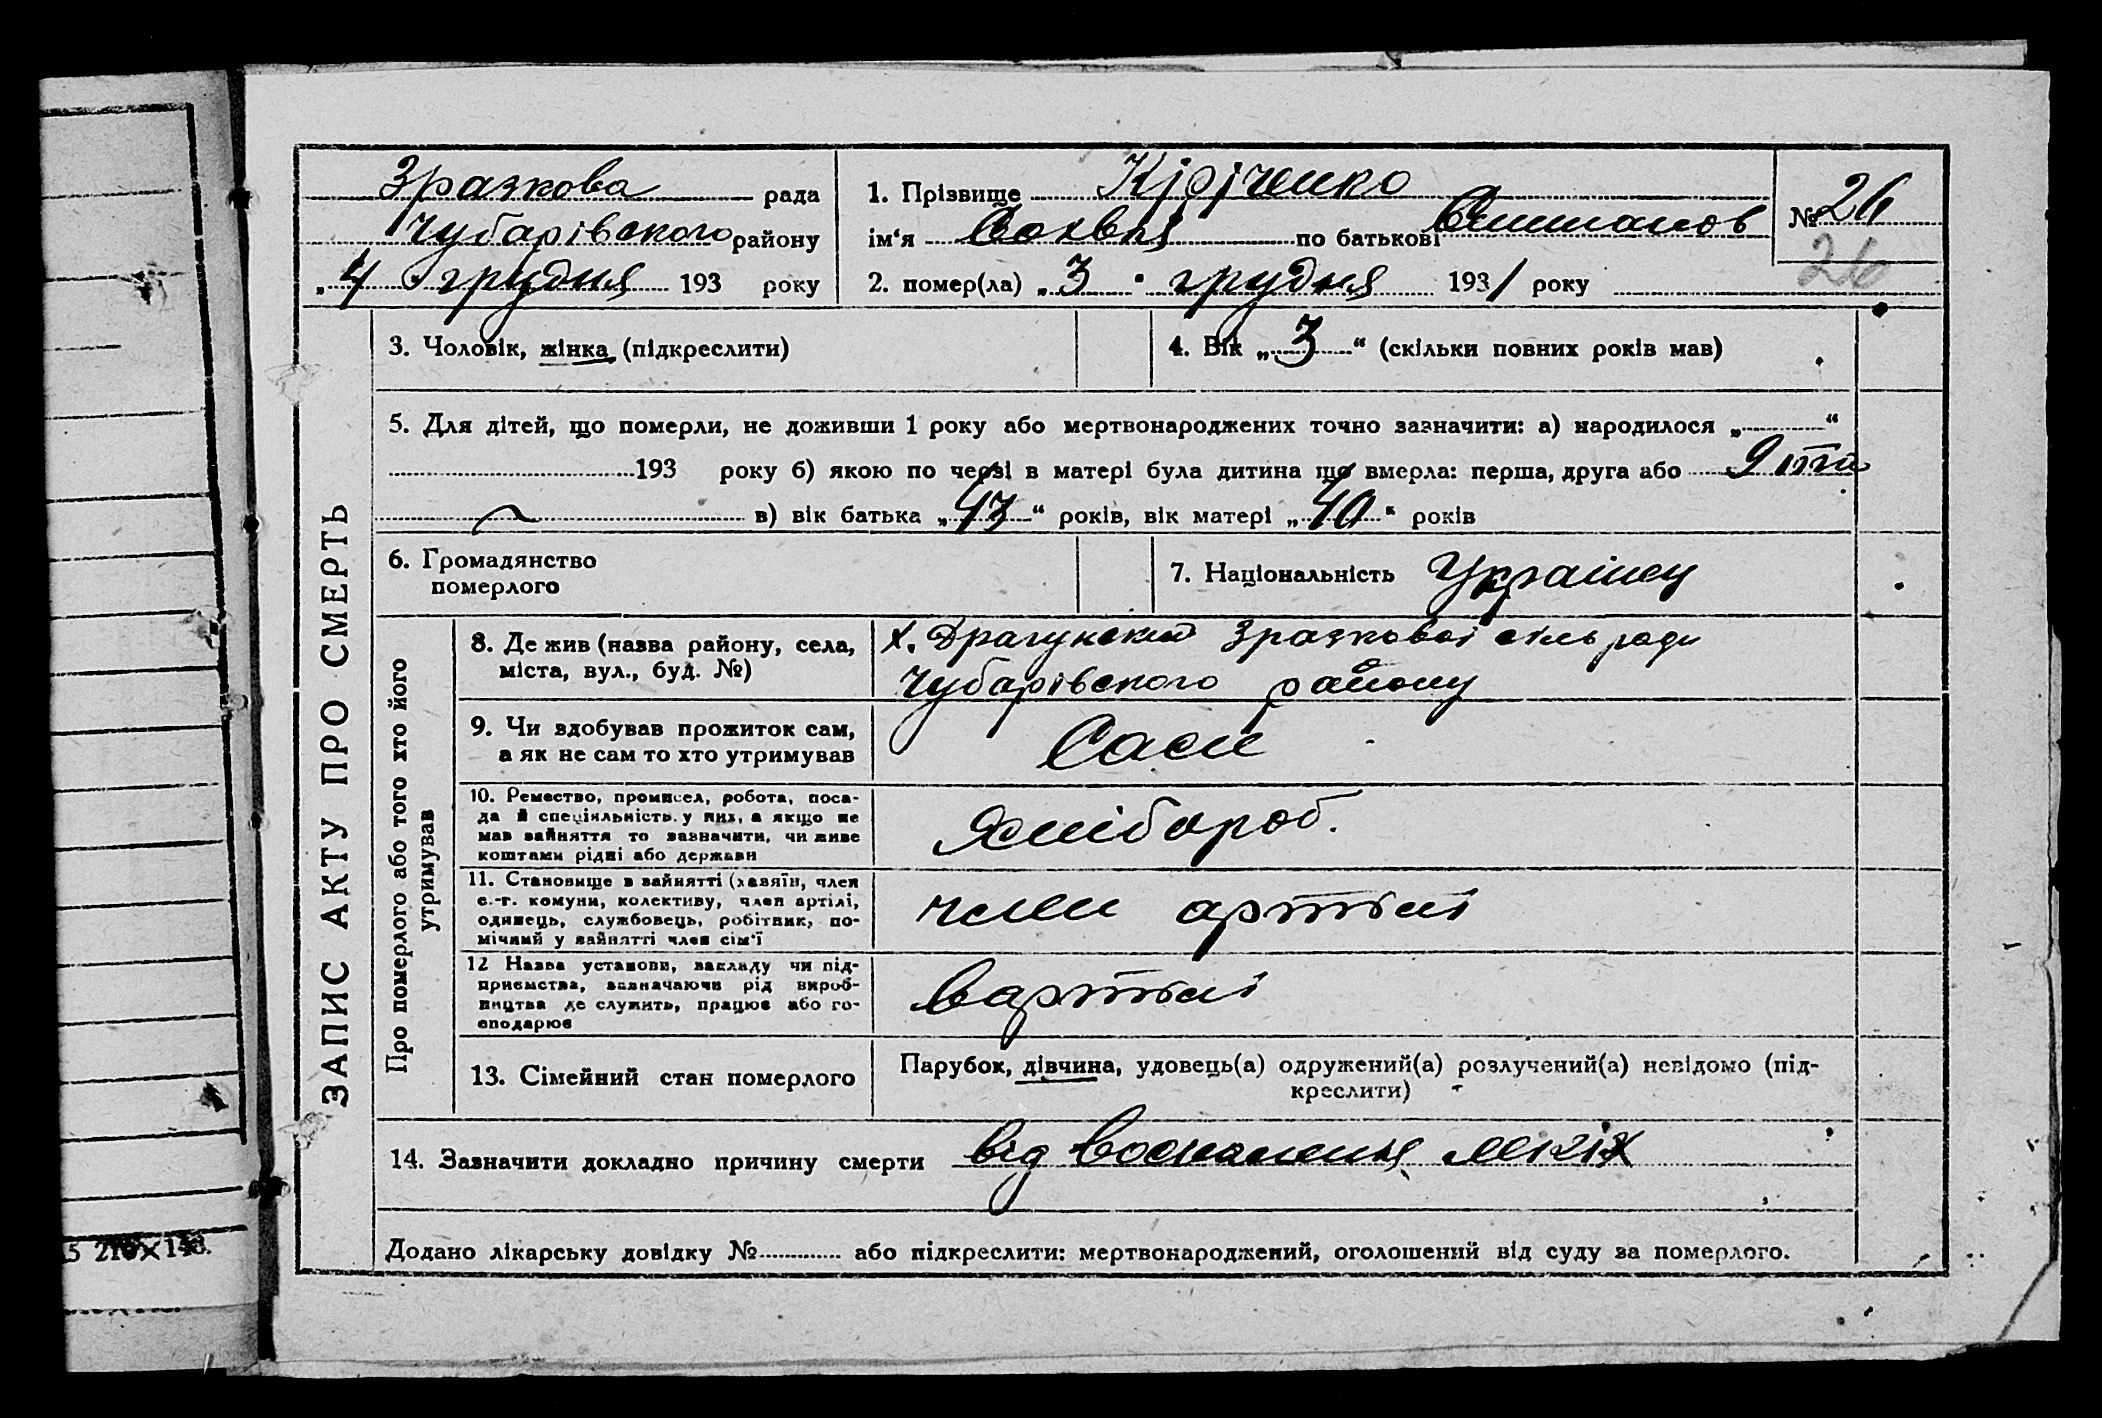 Зразкова рада
Чубарівського району
„4" грудня 193 року
1. Прізвище Кірїченко
ім‘я Сохвия по батькові
2. помер(ла) „3" грудня 1931 року
№ 26
26
ЗАПИС АКТУ ПРО СМЕРТЬ
3. Чоловік, жінка (підкреслити)
4. Вік „3“ (скільки повних років мав)
5. Для дітей, що померли, не доживши 1 року або мертвонароджених точно зазначити: а) народилося „ “
193 року б) якою по черзі в матері була дитина що вмерла: перша, друга або 9 та
в) вік батька „43“ років, вік матері „40“ років
6. Громадянство
померлого
7. Національність Українец
Про померлого або того хто його
утримував
8. Де жив (назва району, села,
міста, вул., буд. №)
х. Драгунский Зразковоі сільради
Чубарівського району
9. Чи здобував прожиток сам,
а як не сам то хто утримував
10. Ремество, промисел, робота, поса-
да й спеціяльність. у них, а якщо не
мав зайняття то зазначити, чи живе
коштами рідні або держави
Хлібороб.
11. Становище в зайнятті (хазяїн, член
с.-г. комуни, колективу, член артілі,
одинець, службовець, робітник, по-
мічний у зайнятті член сім‘ї
член артілі
12 Назва установи, закладу чи під-
приємства, зазначаючи рід вироб-
ництва де служить, працює або го-
сподарює
Вартілі
13. Сімейний стан померлого
Парубок, дівчина, удовець(а) одружений(а) розлучений(а) невідомо (під-
креслити)
14. Зазначити докладно причину смерти від Воспаления
Додано лікарську довідку № або підкреслити: мертвонароджений, оголошений від суду за померлого.
5 210×148.